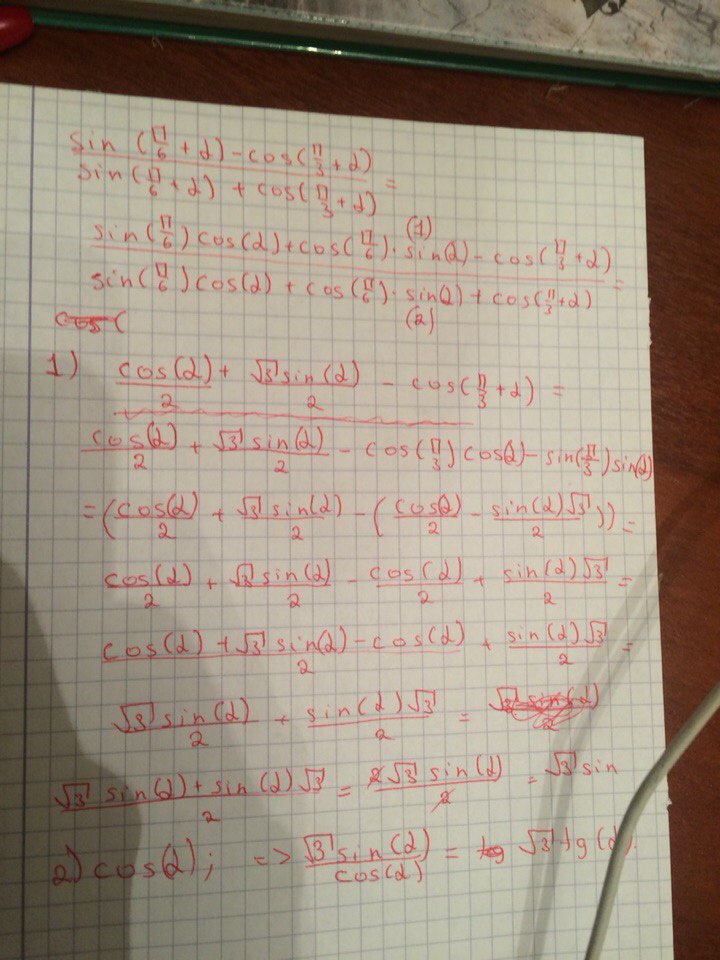 sin(π/6 + α) - cos(π/3 + α)
sin(π/6 + α) + cos(π/3 + α) =
(1)
sin(π/6)cos(α) + cos(π/6)·sin(α) - cos(π/3 + α)
sin(π/6)cos(α) + cos(π/6)·sin(α) + cos(π/3 + α) =
(2)
cos(
1) cos(α)/2 + √3 sin(α)/2 - cos(π/3 + α) =
cos(α)/2 + √3 sin(α)/2 - cos(π/3)cos(α) - sin(π/3)sin(α)
= (cos(α)/2 + √3 sin(α)/2 - (cos(α)/2 - sin(α)√3/2)) =
cos(α)/2 + √3 sin(α)/2 - cos(α)/2 + sin(α)√3/2 =
cos(α) + √3 sin(α) - cos(α)/2 + sin(α)√3/2 =
√3 sin(α)/2 + sin(α)√3/2 = √3 sin(α)/2
√3 sin(α) + sin(α)√3/2 = 2√3 sin(α)/2 = √3 sin
2) cos(α); => √3 sin(α)/cos(α) = tg √3 tg(α).